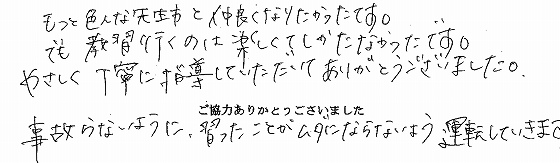 もっと色んな先生方と仲良くなりたかったです。
でも教習行くのは楽しくてしかたなかったです。
やさしく丁寧に指導していただいてありがとうございました。
ご協力ありがとうございました
事故らないように、習ったことがムダにならないよう運転していきま